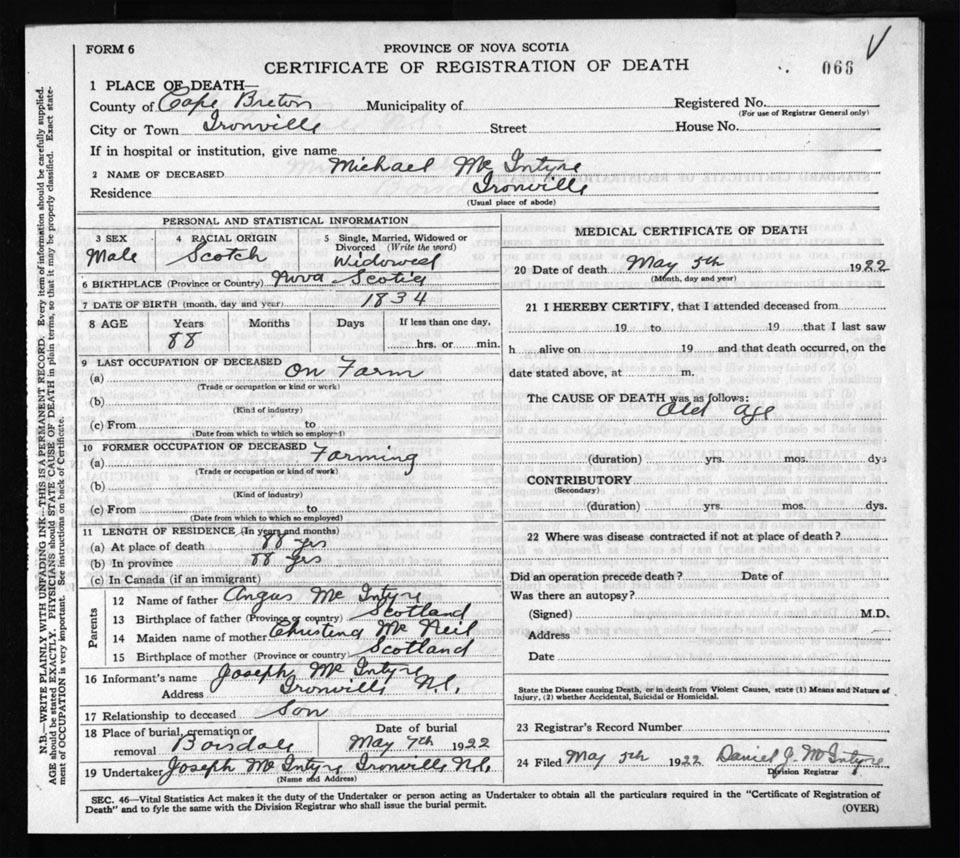 FORM 6
PROVINCE OF NOVA SCOTIA
CERTIFICATE OF REGISTRATION OF DEATH
068
1 PLACE OF DEATH—
County of Cape Breton Municipality of Registered No.
(For use of Registrar General only)
City or Town Ironville Street House No.
If in hospital or institution, give name
2 NAME OF DECEASED Michael Mc Intyre
Residence Ironville
(Usual place of abode)
PERSONAL AND STATISTICAL INFORMATION
3 SEX
Male
4 RACIAL ORIGIN
Scotch
5 Single, Married, Widowed or
Divorced (Write the word)
Widowed
6 BIRTHPLACE (Province or Country) Nova Scotia
7 DATE OF BIRTH (month, day and year) 1834
8 AGE Years Months Days If less than one day,
88 hrs. or min.
9 LAST OCCUPATION OF DECEASED
(a) On Farm
(Trade or occupation or kind or work)
(b)
(Kind of industry)
(c) From to
(Date from which to which so employed)
10 FORMER OCCUPATION OF DECEASED
(a) Farming
(Trade or occupation or kind of work)
(b)
(Kind of industry)
(c) From to
(Date from which to which so employed)
11 LENGTH OF RESIDENCE (In years and months)
(a) At place of death 88 yrs
(b) In province 88 yrs
(c) In Canada (if an immigrant)
Parents
12 Name of father Angus Mc Intyre
13 Birthplace of father (Province or country) Scotland
14 Maiden name of mother Christina Mc Neil
15 Birthplace of mother (Province or country) Scotland
16 Informant's name Joseph Mc Intyre
Address Ironville N.S.
17 Relationship to deceased Son
18 Place of burial, cremation or
removal Boisdale
Date of burial
May 7th 1922
19 Undertaker Joseph Mc Intyre Ironville N.S.
(Name and Address)
MEDICAL CERTIFICATE OF DEATH
20 Date of death May 5th 1922
(Month, day and year)
21 I HEREBY CERTIFY, that I attended deceased from
19 to 19 that I last saw
h alive on 19 and that death occurred, on the
date stated above, at m.
The CAUSE OF DEATH was as follows:
Old age
(duration) yrs. mos. dys
CONTRIBUTORY
(Secondary)
(duration) yrs. mos. dys.
22 Where was disease contracted if not at place of death?
Did an operation precede death? Date of
Was there an autopsy?
(Signed) M.D.
Address
Date
State the Disease causing Death, or in death from Violent Causes, state (1) Means and Nature of
Injury, (2) whether Accidental, Suicidal or Homicidal.
23 Registrar's Record Number
24 Filed May 5th 1922 Daniel J. McIntyre
Division Registrar
SEC. 46—Vital Statistics Act makes it the duty of the Undertaker or person acting as Undertaker to obtain all the particulars required in the "Certificate of Registration of
Death" and to fyle the same with the Division Registrar who shall issue the burial permit.
(OVER)
N.B.—WRITE PLAINLY WITH UNFADING INK—THIS IS A PERMANENT RECORD. Every item of information should be carefully supplied.
AGE should be stated EXACTLY. PHYSICIANS should STATE CAUSE OF DEATH in plain terms, so that it may be properly classified. Exact state-
ment of OCCUPATION is very important. See instructions on back of Certificate.